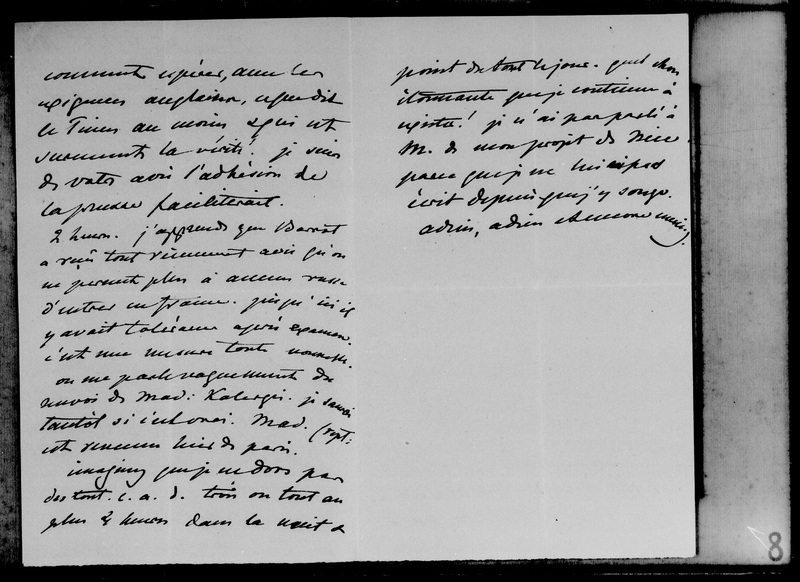 comment espérer, avec les
exigences anglaises, ce que dit
le Times au moins et qui est
surement la vérité! je suis
de votre avis l'adhésion de
la prusse faciliterait.
2 heures. j'apprends que Barrot
a reçu tout récemment avis qu'on
ne permet plus à aucun russe
d'entrer en france. jusqu'ici il
y avait tolérance après examen.
c'est une mesure toute nouvelle.
on me parle vaguement du
renvoi de Mad: Kalergi. je saurai
tantôt si c'est vrai. Mad.
est revenue hier de paris.
imaginez que je ne dors pas
du tout. c. a. d. trois ou tout au
plus 4 heures dans la nuit &
point du tout le jour. quelle chose
étonnante que je continue à
exister! je n'ai pas parlé à
M. de mon projet de Nice
parce que je ne lui ai pas
écrit depuis que j'y songe.
adieu, adieu et encore mille
8